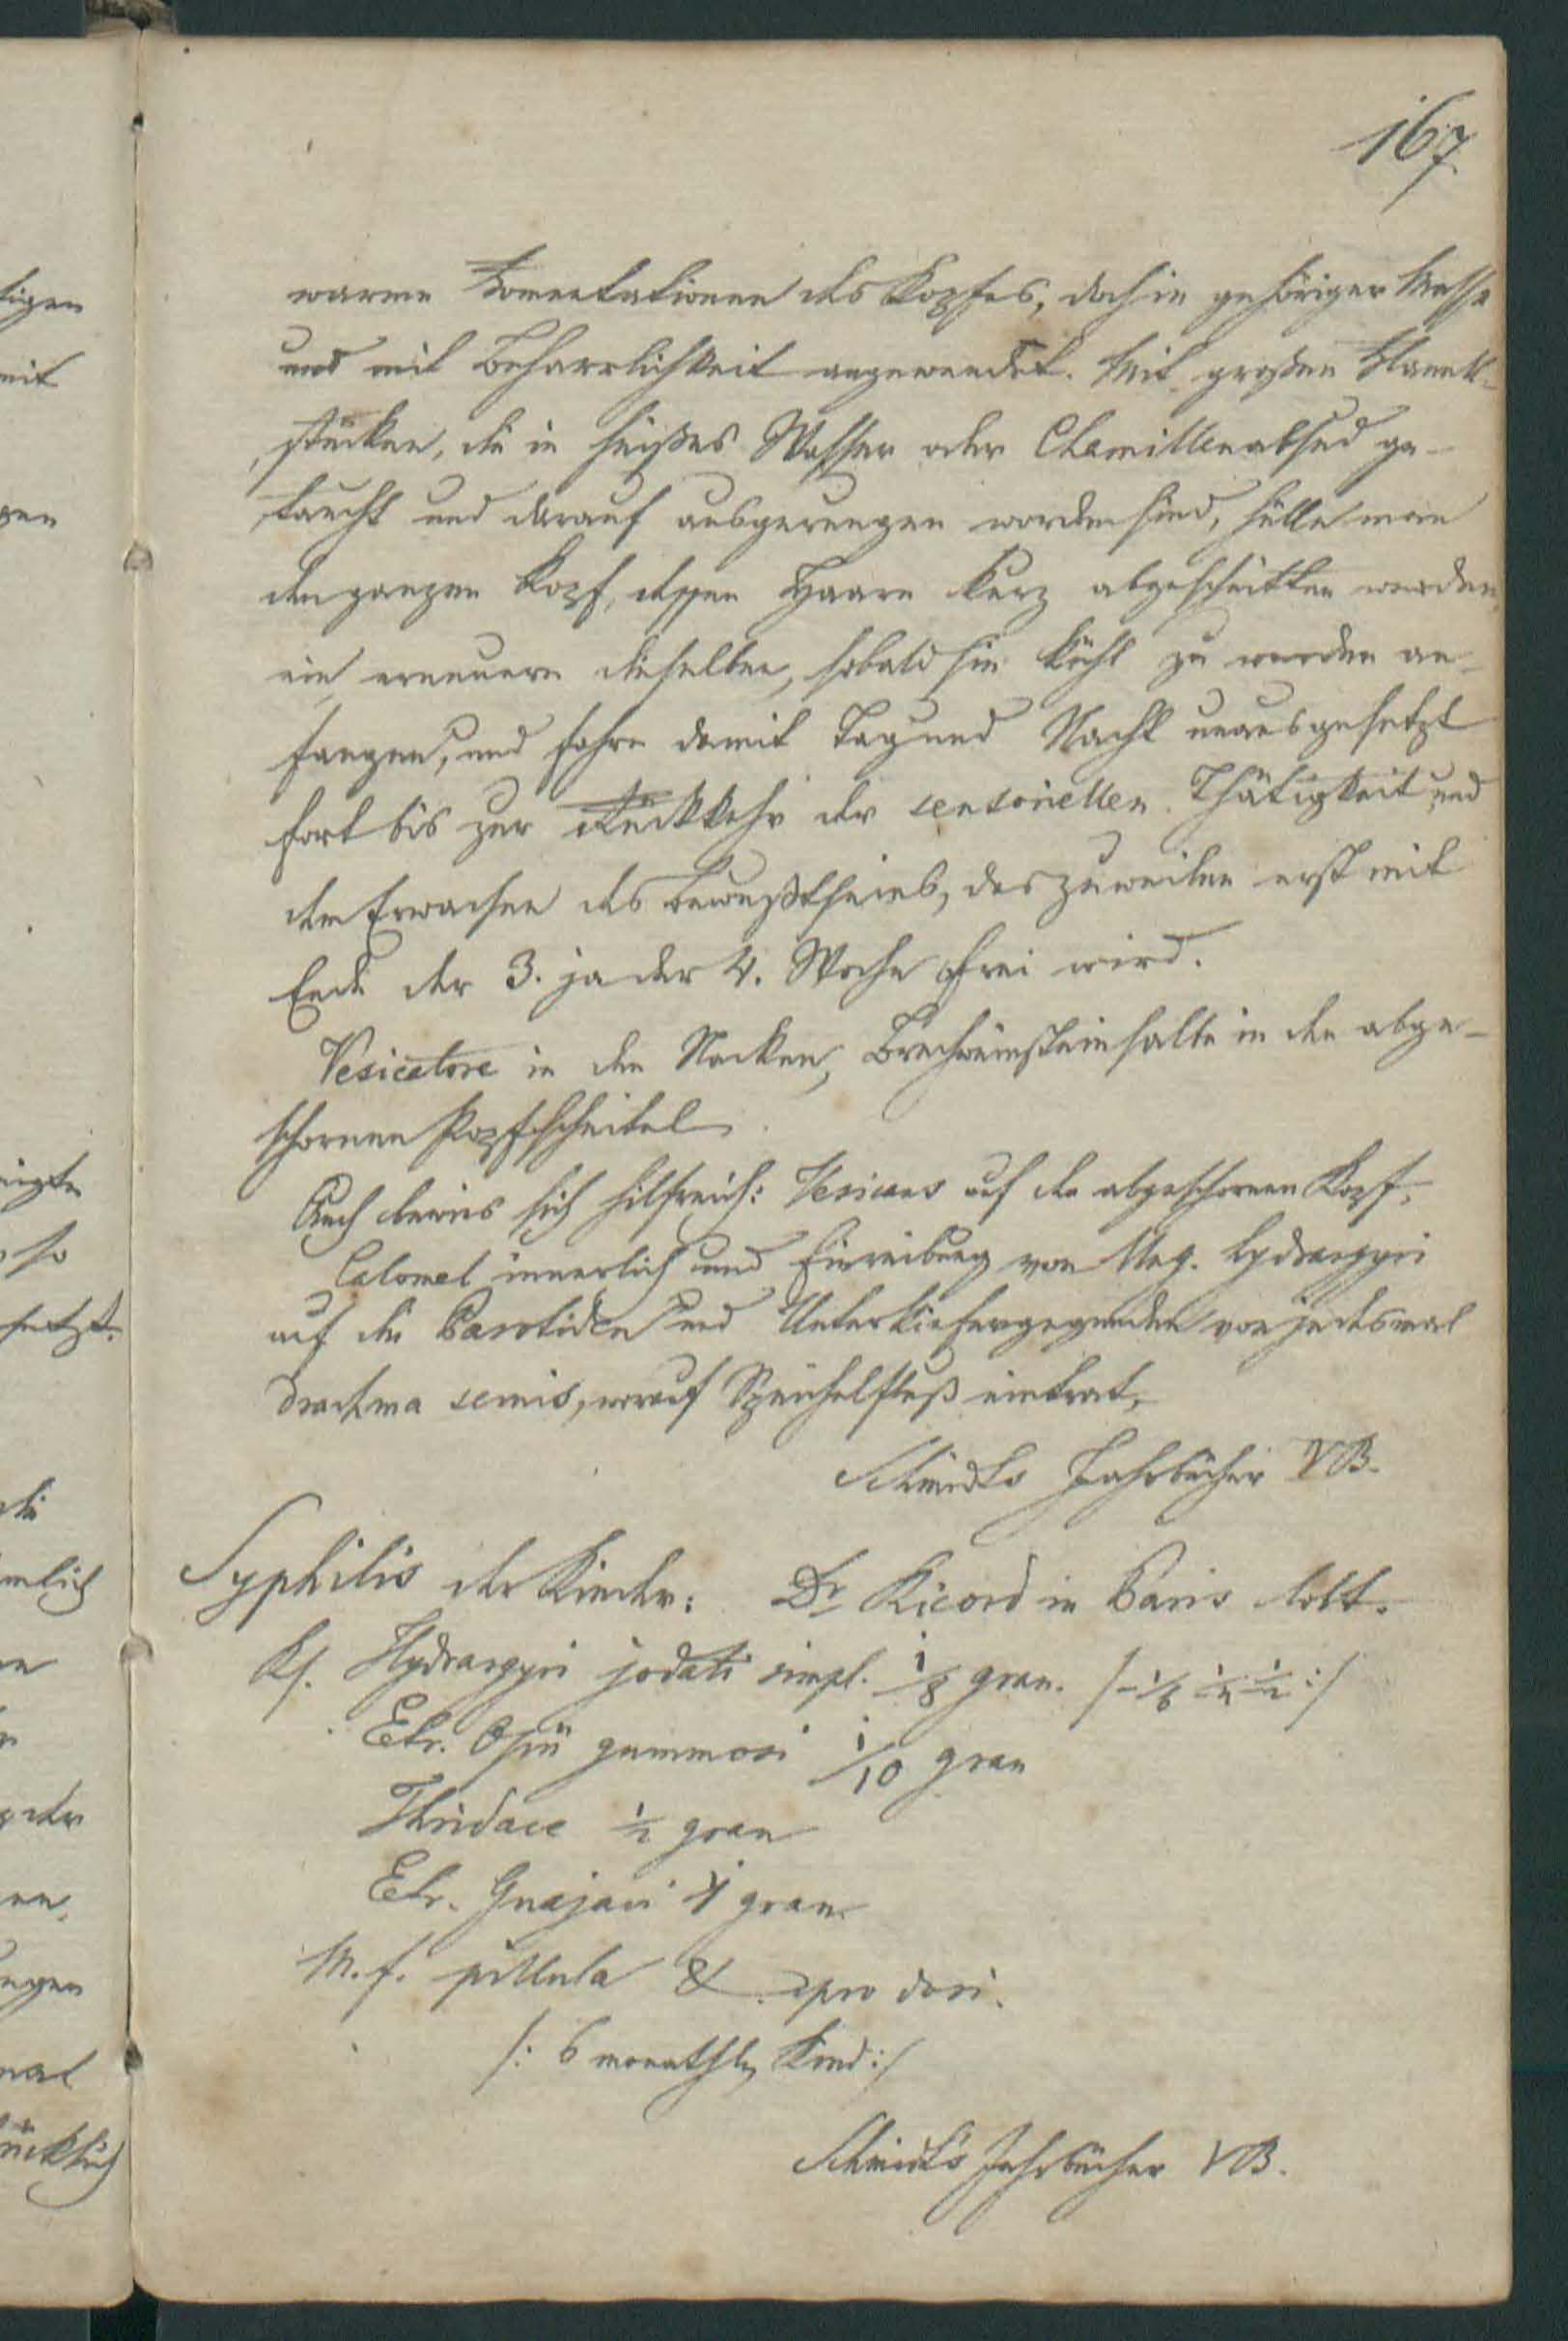 167
warme Fomentationen des Kopfes, doch in gehöriger Masse
und mit Beharrlichkeit angewendet. Mit großen Flanell-
stücken, die in heißes Wasser oder Chamillenabsud ge-
taucht und darauf ausgerungen worden sind, hülle man
den ganzen Kopf, dessen Haare kurz abgeschnitten werden
ein, erneuere dieselben, sobald sie kühl zu werden an-
fangen, und fahre damit Tag und Nacht unausgesetzt
fort bis zur Rückkehr der sensoriellen Thätigkeit und
dem Erwachen des Bewußtseins, das zuweilen erst mit
Ende der 3. ja der 4. Woche frei wird.
Vesicatore in den Nacken, Brechweinsteinsalbe in den abge-
schornen Kopfscheitel.
Auch bewies sich hilfreich: Vesicans auf den abgeschornen Kopf,
Calomel innerlich und Einreibung von Ung. hydrargyri
auf die Parotiden und Unterkiefergegenden von jedesmal
drachma semis, worauf Speichelfluß eintrat.
Schmidts Jahrbücher VB.
Syphilis der Kinder: Dr Ricord in Paris lobt.
Rf. Hydrargyri jodati simpl. 1/8 gran. /-1/6 1/4 1/2:/
Etr. Opii gummosi 1/10 gran
Thridace 1/2 gran
Etr. Guajaci 1 gran
M. f. pillula & pro dosi.
/: 6 monathl. Kind:/
Schmidt's Jahrbücher VB.
tigen
mit
gen
so
setzt.
die
mlich
der
ngen
mal
ücklich